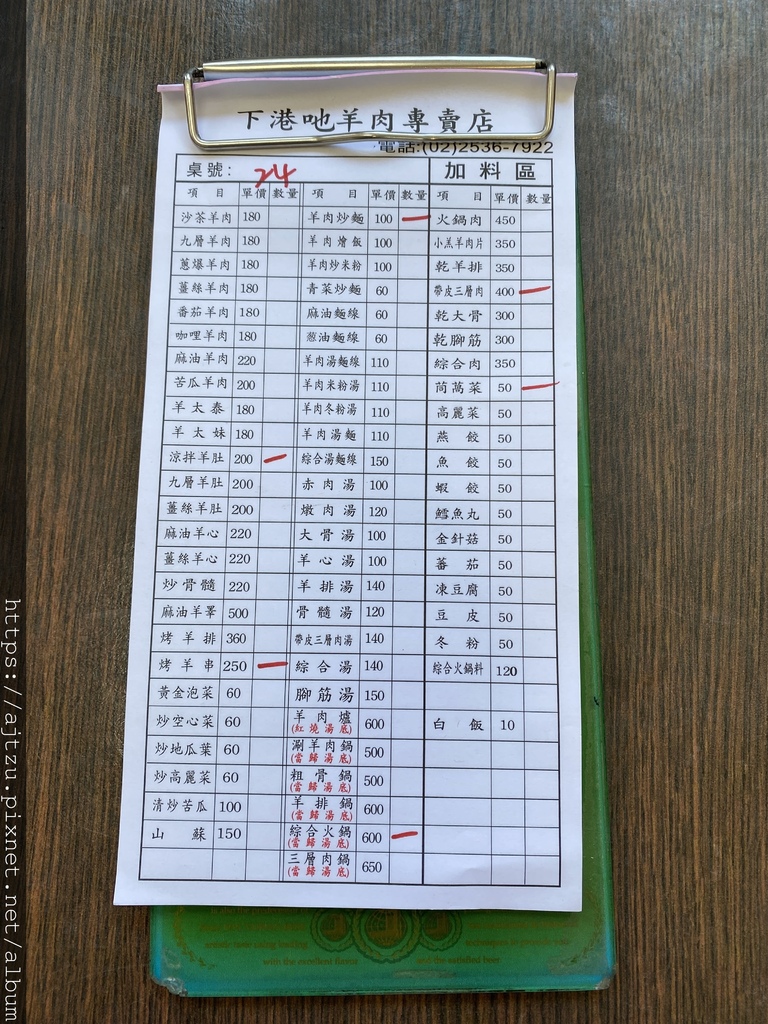 下港吔羊肉專賣店
電話:(02)2536-7922
桌號: 24 加料區
項目 單價 數量 項目 單價 數量 項目 單價 數量
沙茶羊肉 180 羊肉炒麵 100 一 火鍋肉 450
九層羊肉 180 羊肉燴飯 100 小羔羊肉片 350
蔥爆羊肉 180 羊肉炒米粉 100 乾羊排 350
薑絲羊肉 180 青菜炒麵 60 帶皮三層肉 400 一
番茄羊肉 180 麻油麵線 60 乾大骨 300
咖哩羊肉 180 葱油麵線 60 乾腳筋 300
麻油羊肉 220 羊肉湯麵線 110 綜合肉 350
苦瓜羊肉 200 羊肉米粉湯 110 茼萵菜 50 一
羊太泰 180 羊肉冬粉湯 110 高麗菜 50
羊太妹 180 羊肉湯麵 110 燕餃 50
涼拌羊肚 200 一 綜合湯麵線 150 魚餃 50
九層羊肚 200 赤肉湯 100 蝦餃 50
薑絲羊肚 200 燉肉湯 120 鱈魚丸 50
麻油羊心 220 大骨湯 100 金針菇 50
薑絲羊心 220 羊心湯 100 蕃茄 50
炒骨髓 220 羊排湯 140 凍豆腐 50
麻油羊睪 500 骨髓湯 120 豆皮 50
烤羊排 360 帶皮三層肉湯 140 冬粉 50
烤羊串 250 一 綜合湯 140 綜合火鍋料 120
黃金泡菜 60 腳筋湯 150
炒空心菜 60 羊肉爐 600 白飯 10
(紅燒湯底)
炒地瓜葉 60 涮羊肉鍋 500
(當歸湯底)
炒高麗菜 60 粗骨鍋 500
(當歸湯底)
清炒苦瓜 100 羊排鍋 600
(當歸湯底)
山蘇 150 綜合火鍋 600 一
(當歸湯底)
三層肉鍋 650
(當歸湯底)
with the excellent flavor and the satisfied beer
https://ajtzu.pixnet.net/album